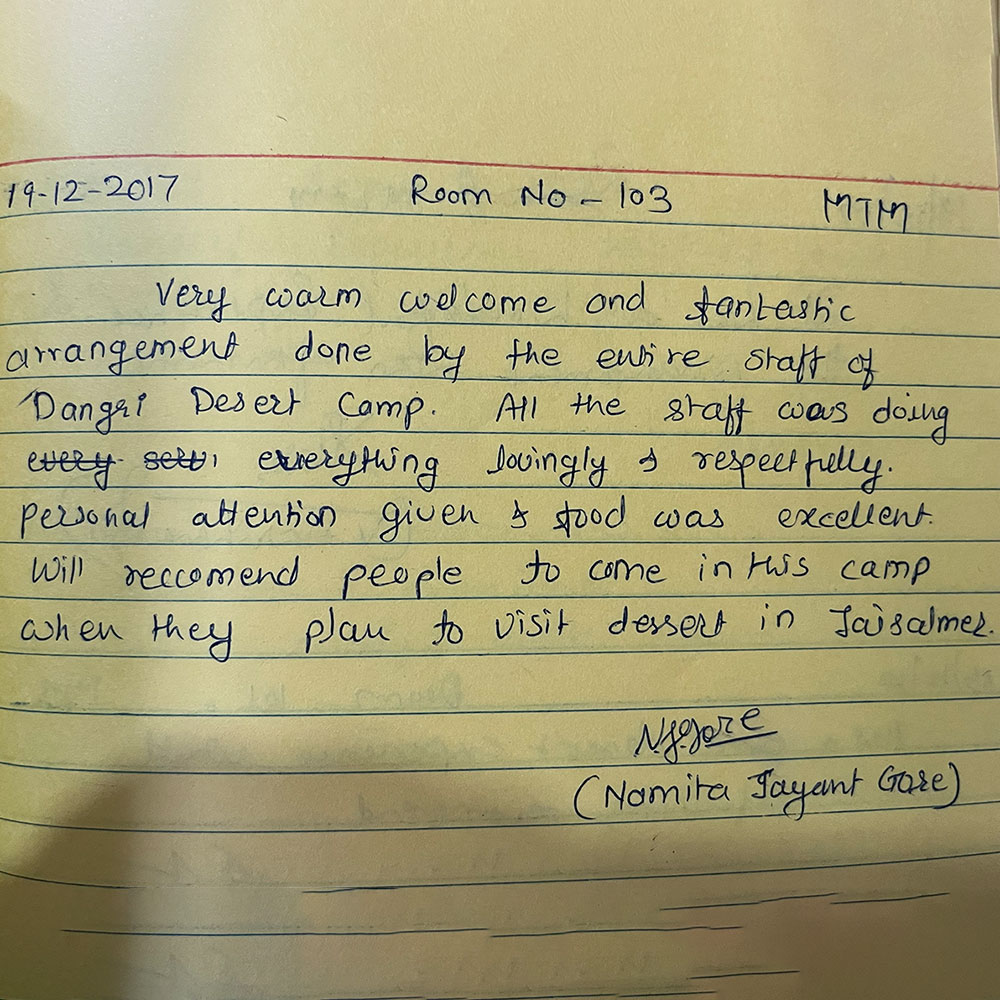 19-12-2017 Room No - 103 MTM
Very warm welcome and fantastic
arrangement done by the entire staff of
Dangri Desert Camp. All the staff was doing
every serv, everything lovingly & respectfully.
personal attention given & food was excellent.
Will reccomend people to come in this camp
when they plan to visit dessert in Jaisalmer.
NJGore
(Namita Jayant Gore)